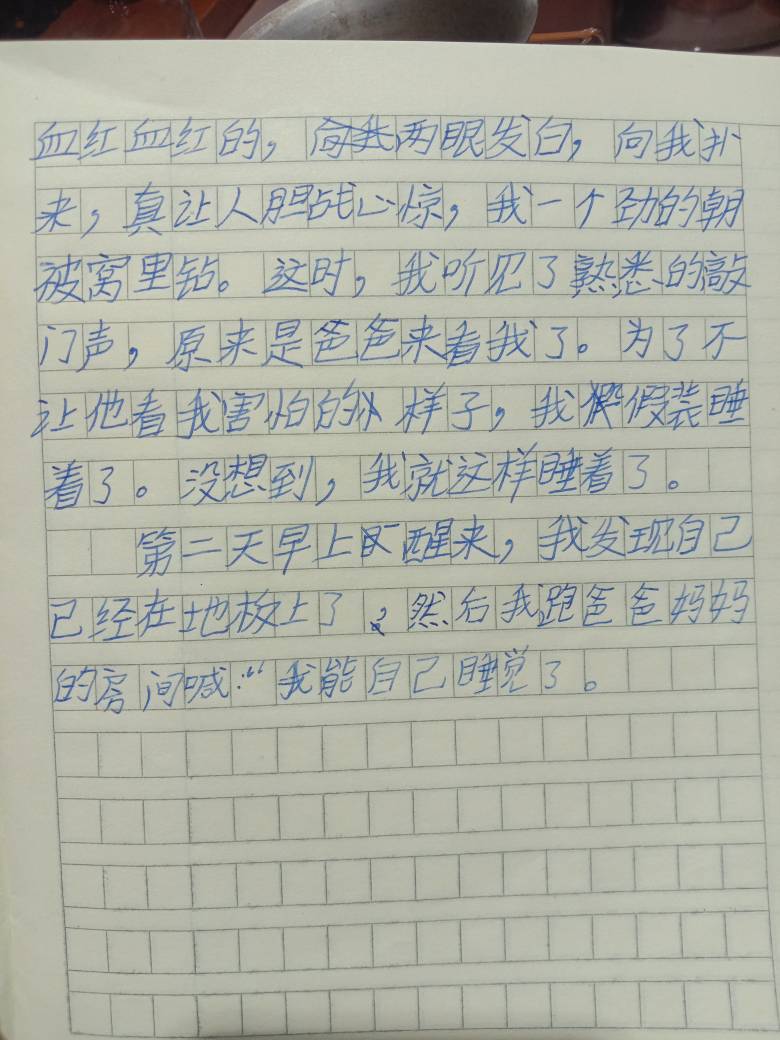 血红血红的，两眼发白，向我扑
来，真让人胆战心惊，我一个劲的朝
被窝里钻。这时，我听见了熟悉的敲
门声，原来是爸爸来看我了。为了不
让他看我害怕的样子，我假装睡
着了。没想到，我就这样睡着了。
第二天早上醒来，我发现自己
已经在地板上了，然后我跑爸爸妈妈
的房间喊：“我能自己睡觉了。